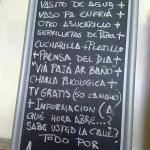 VASITO DE AGUA +
VASO PA ENFRIÁ +
OTRO ASUCARILLO +
SERVILLETAS DE PAPEL
CUCHARILLA + PLATILLO
+ PRENSA DEL DIA +
"VIÁ PAJAR AR BAÑO" +
CHARLA PSICOLOGICA +
TV GRATIS (50 CANALES)
+ INFORMACION (A
QUÉ HORA ABRE...?
SABE USTED LA CALLE?
TODO POR